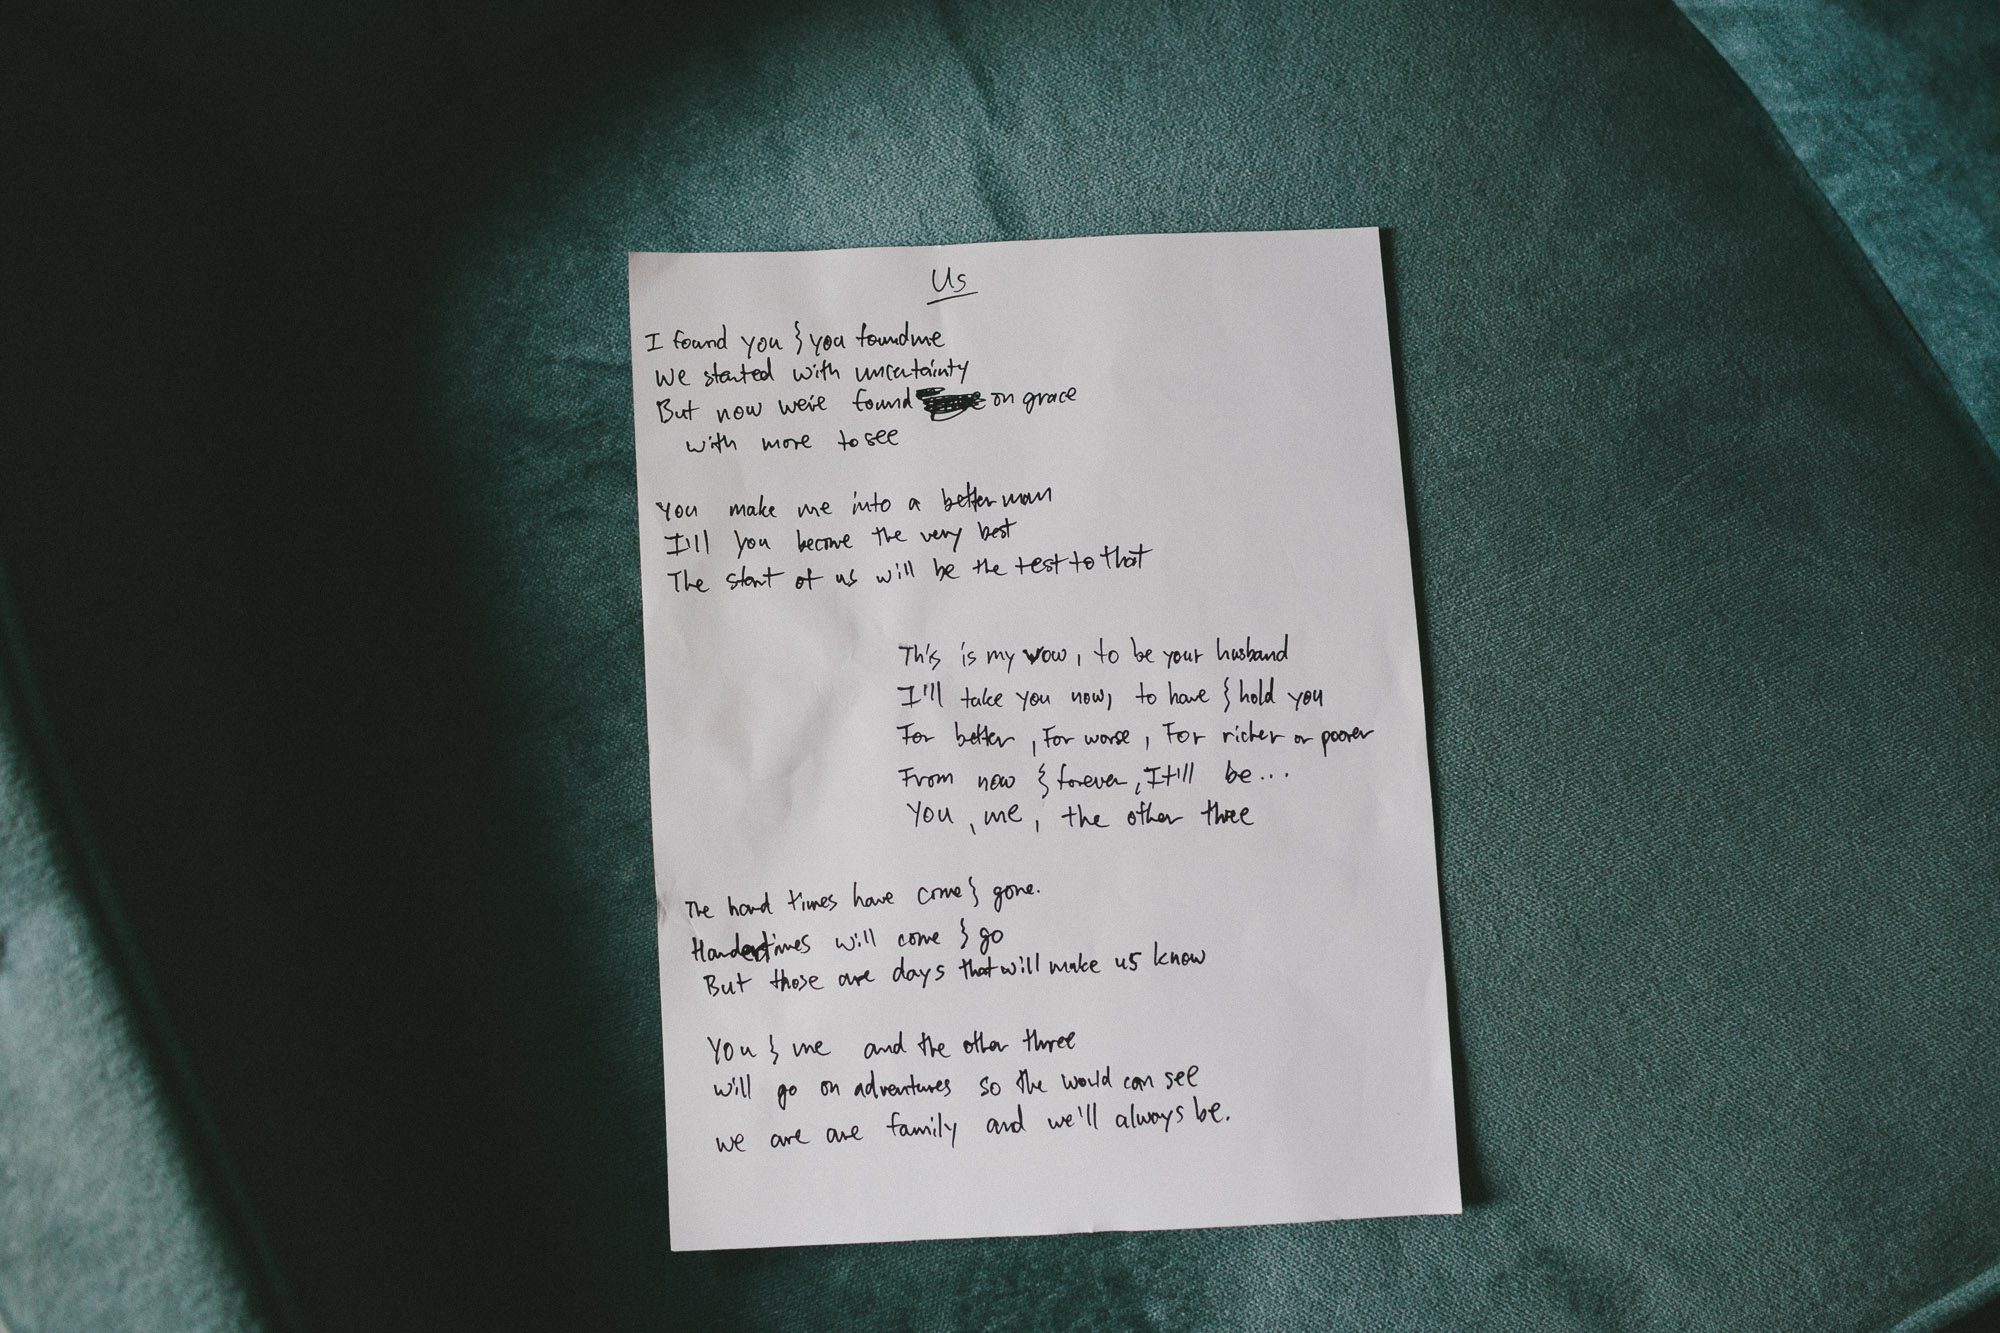 Us
I found you & you found me
We started with uncertainty
But now we're found on grace
with more to see
You make me into a better man
I'll you become the very best
The start of us will be the test to that
This is my vow, to be your husband
I'll take you now, to have & hold you
For better, For worse, For richer or poorer
From now & forever, It'll be...
You, me, the other three
The hard times have come & gone.
Harder times will come & go
But those are days that will make us know
You & me and the other three
will go on adventures so the world can see
we are are family and we'll always be.